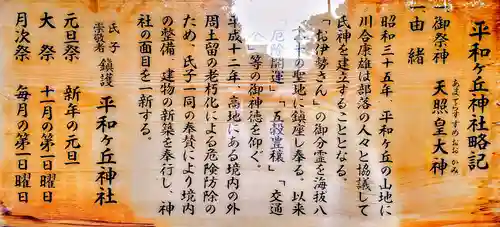 平和ヶ丘神社略記
一御祭神 天照皇大神
あまてらすすめおおかみ
一由緒
昭和三十五年、平和ヶ丘の山地に
川合康雄は部落の人々と協議して
氏神を建立することとなる。
「お伊勢さん」の御分霊を海抜八
十の聖地に鎮座し奉る。以来
「厄除開運」「五穀豊穣」「交通
」等の御神徳を仰ぐ。
平成十二年、高地にある境内の外
周土留の老朽化による危険防除の
ため、氏子一同の奉賛により境内
の整備、建物の新築を奉行し、神
社の面目を一新する。
氏子
崇敬者 鎮護 平和ヶ丘神社
元旦祭 新年の元旦
大祭 十一月の第一日曜日
月次祭 毎月の第一日曜日